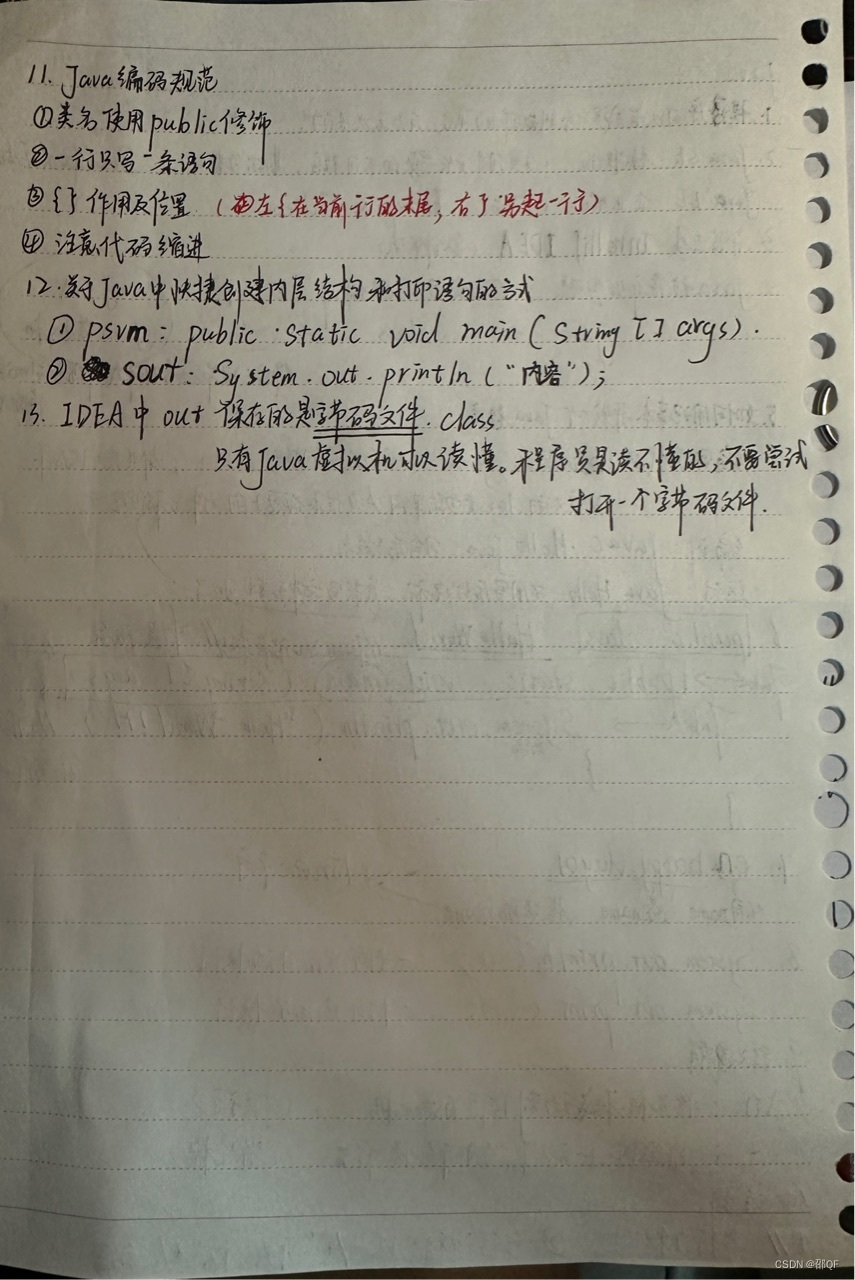 11. Java编码规范
①类名使用public修饰
②一行只写一条语句
③{}作用及位置 (左{在当前行的末尾，右}另起一行)
④ 注意代码缩进
12.关于Java中快捷创建内层结构和打印语句的方式
① psvm: public static void main (String [] args).
② sout: System.out.println ("内容");
13. IDEA中 out 保存的是字节码文件.class
只有Java虚拟机可以读懂。程序员是读不懂的，不要尝试
打开一个字节码文件.
CSDN @邵QF